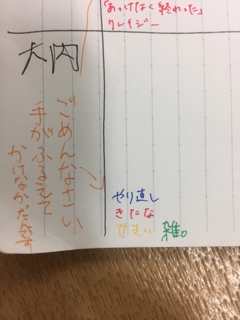 「あっけなく終わった」
クレイジー
大内
ごめんなさい
手がふるえて
かけなかったです
やり直し
きたな
せまい 雑。